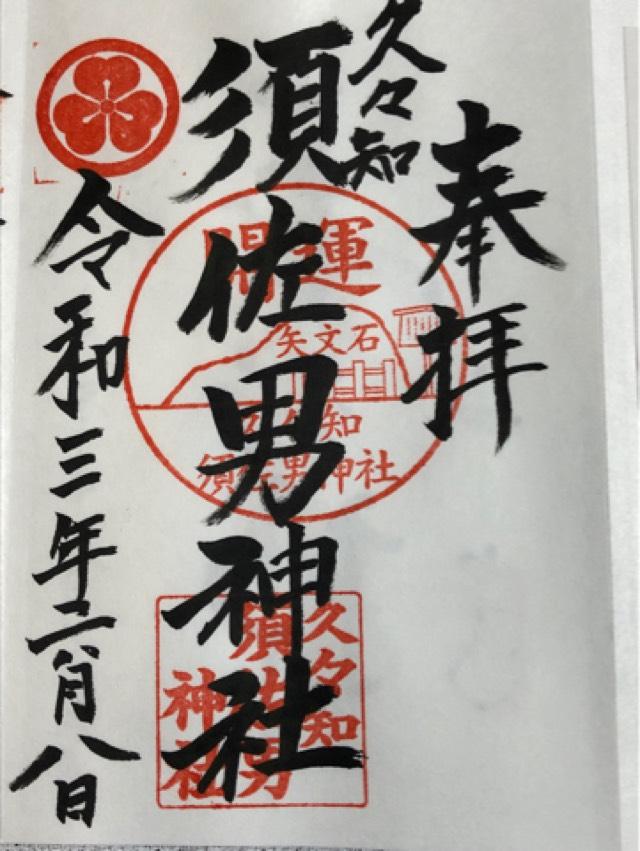 奉拝
久々知
須佐男神社
令和三年二月八日
開運
矢文石
久々知
須佐男神社
久々知
須佐男
神社